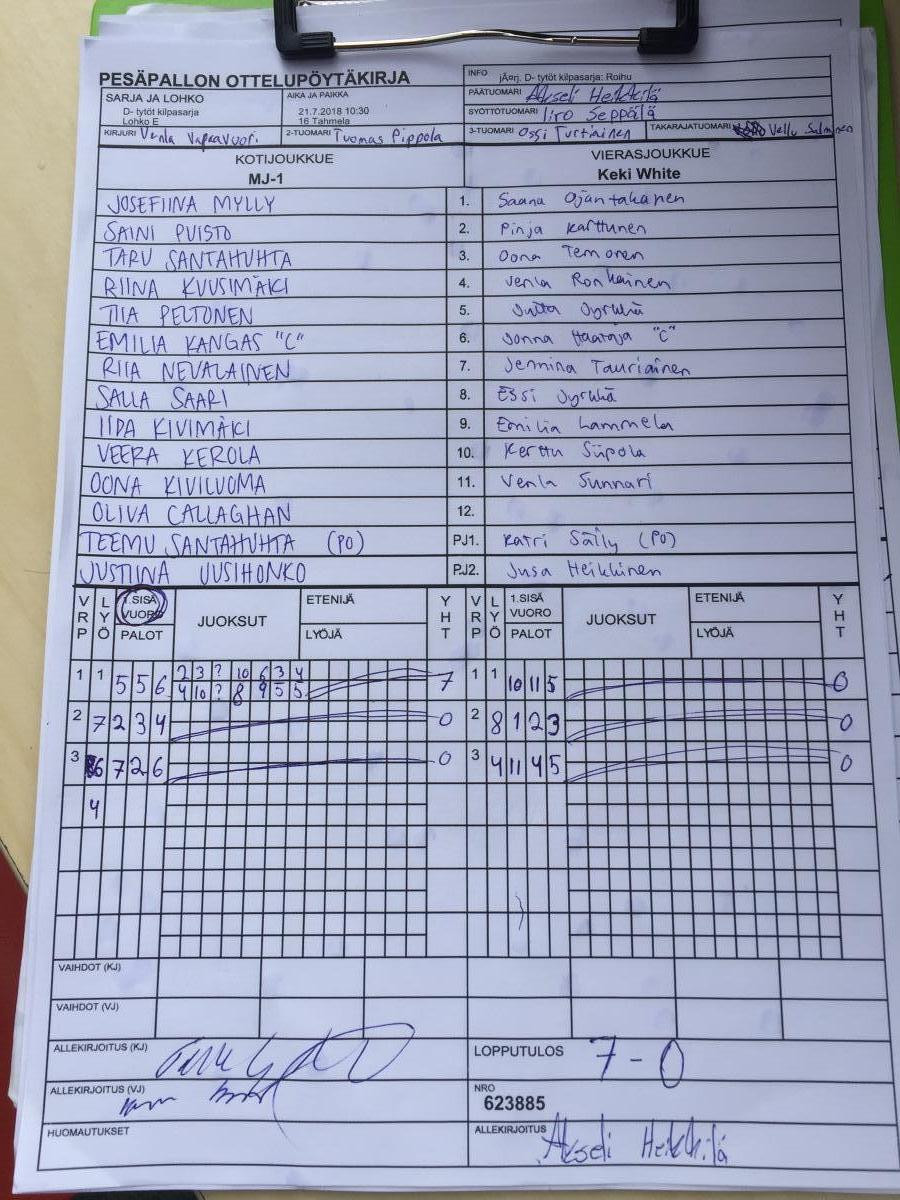 PESÄPALLON OTTELUPÖYTÄKIRJA
INFO jÄ¤rj. D- tytöt kilpasarja: Roihu
SARJA JA LOHKO
D- tytöt kilpasarja
Lohko E
AIKA JA PAIKKA
21.7.2018 10:30
16 Tahmela
PÄÄTUOMARI Akseli Heikkilä
SYÖTTÖTUOMARI Iiro Seppälä
KIRJURI Venla
2-TUOMARI Tuomas Pippola
3-TUOMARI Ossi Turtiainen
TAKARAJATUOMARI Vellu Salminen
KOTIJOUKKUE VIERASJOUKKUE
MJ-1 Keki White
JOSEFIINA MYLLY 1. Saana Ojantakanen
SAINI PUISTO 2. Pinja Karttunen
TARU SANTAHUHTA 3. Oona Temonen
RIINA KUUSIMÄKI 4. Venla Ronkainen
TIIA PELTONEN 5. Jutta Jyrkkä
EMILIA KANGAS "C" 6. Jonna Haataja "C"
RIIA NEVALAINEN 7. Jemina Tauriainen
SALLA SAARI 8. Essi Jyrkkä
IIDA KIVIMÄKI 9. Emilia Lammela
VEERA KEROLA 10. Kerttu Siipola
OONA KIVILUOMA 11. Venla Sunnari
OLIVA CALLAGHAN 12.
TEEMU SANTAHUHTA (PO) PJ1. Katri Säily (PO)
JUSTIINA UUSIHONKO PJ2. Jusa Heikkinen
VRP LYÖ 1.SISÄ VUORO PALOT JUOKSUT ETENIJÄ LYÖJÄ YHT VRP LYÖ 1.SISÄ VUORO PALOT JUOKSUT ETENIJÄ LYÖJÄ YHT
1 1 5 5 6 2 3 ? 10 6 3 4 7 1 1 10 11 5 0
4 10 ? 8 9 5 5
2 7 2 3 4 0 2 8 1 2 3 0
3 6 7 2 6 0 3 4 11 4 5 0
4
VAIHDOT (KJ)
VAIHDOT (VJ)
ALLEKIRJOITUS (KJ)
LOPPUTULOS 7 - 0
ALLEKIRJOITUS (VJ)
NRO
623885
HUOMAUTUKSET
ALLEKIRJOITUS Akseli Heikkilä